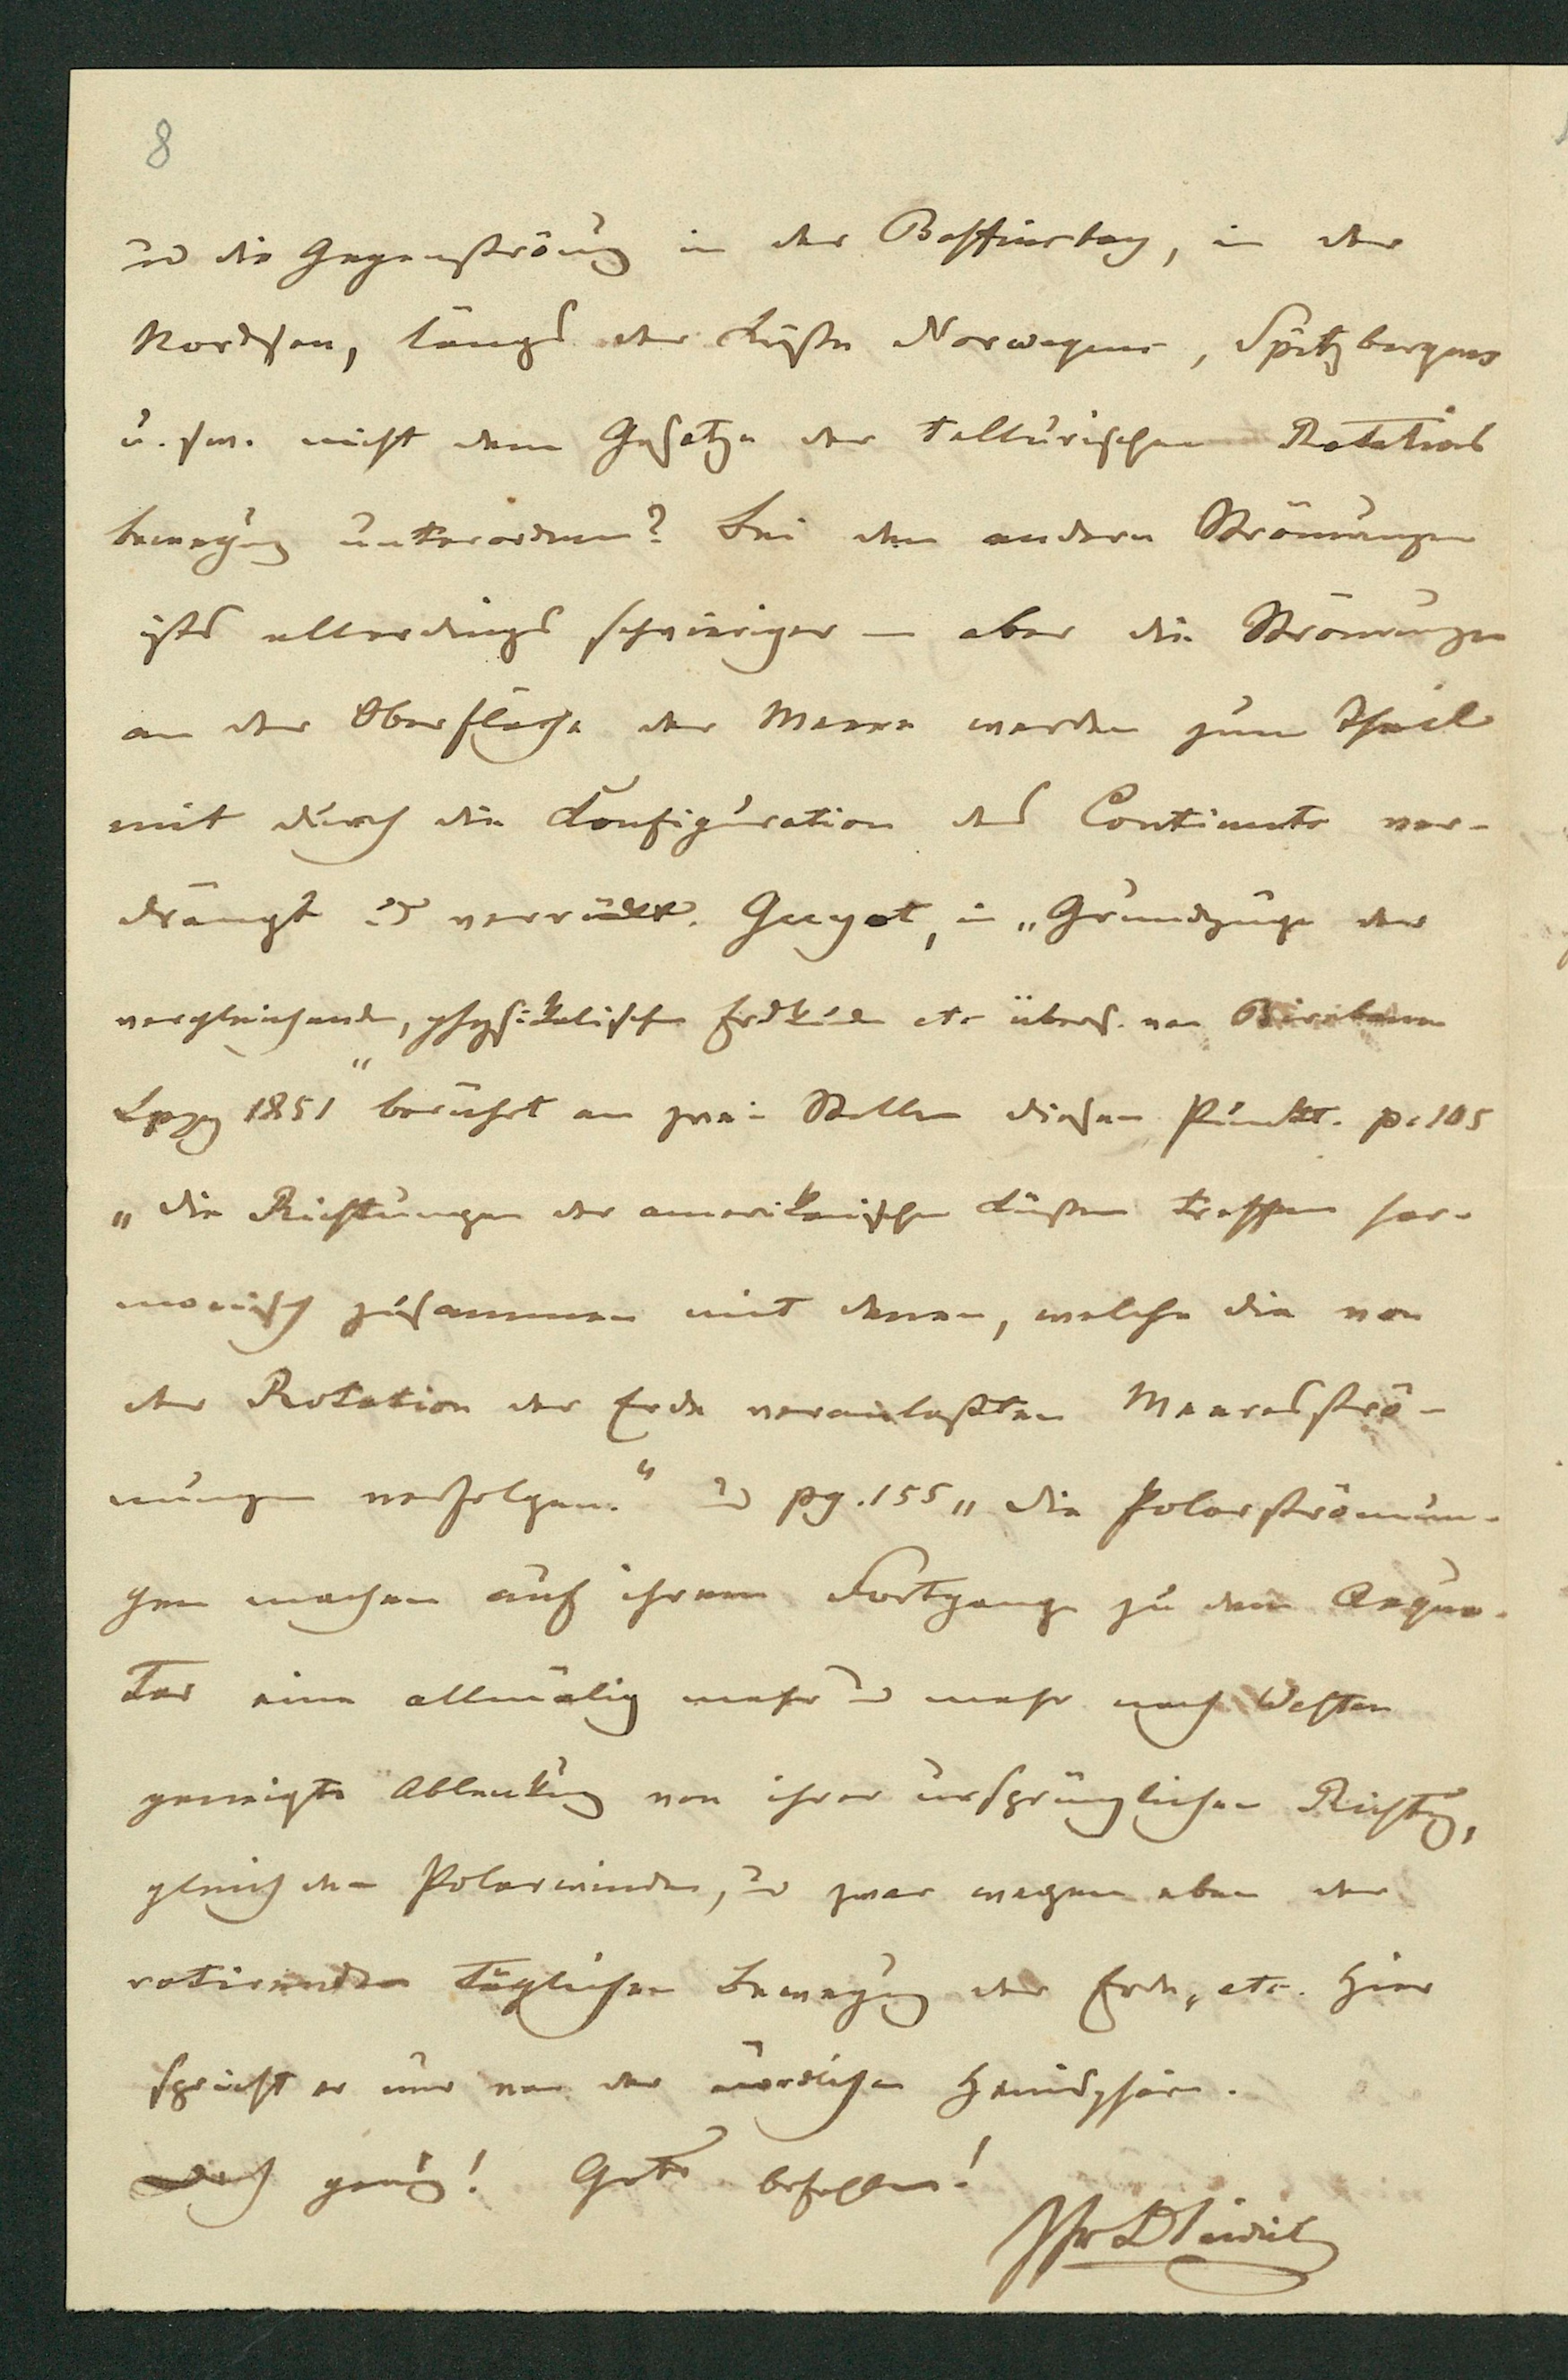 8
u die Gegenströmung in der Baffinsbay, in der
Nordsee, längs der Küste Norwegens, Spitzbergens
u. s. w. nicht dem Gesetze der tellurischen Rotations
bewegung unterordnen? Bei den andern Strömungen
ists allerdings schwieriger – aber die Strömungen
an der Oberfläche der Meere werden zum Theil
mit durch die Konfiguration des Continents ver-
drängt u verrückt. Guyot, in „Grundzüge der
vergleichenden, physikalischen Erdkunde etc übers. von Birnbaum
Lpzg 1851“ berührt an zwei Stellen diesen Punkt. p. 105
„die Richtungen der amerikanischen Küsten treffen har-
monisch zusammen mit denen, welche die von
der Rotation der Erde veranlaßten Meeresströ-
mungen verfolgen.“ u pg. 155 „die Polarströmun-
gen machen auf ihrem Fortgange zu dem Aequa-
tor eine allmälig mehr u mehr nach Westen
geneigte Ablenkung von ihrer ursprünglichen Richtung,
gleich den Polarwinden, u zwar wegen eben der
rotirenden täglichen Bewegung der Erde„ etc. Hier
spricht er nur von der nördlichen Hemisphäre.
Doch genug! Gott befohlen!
Ihr